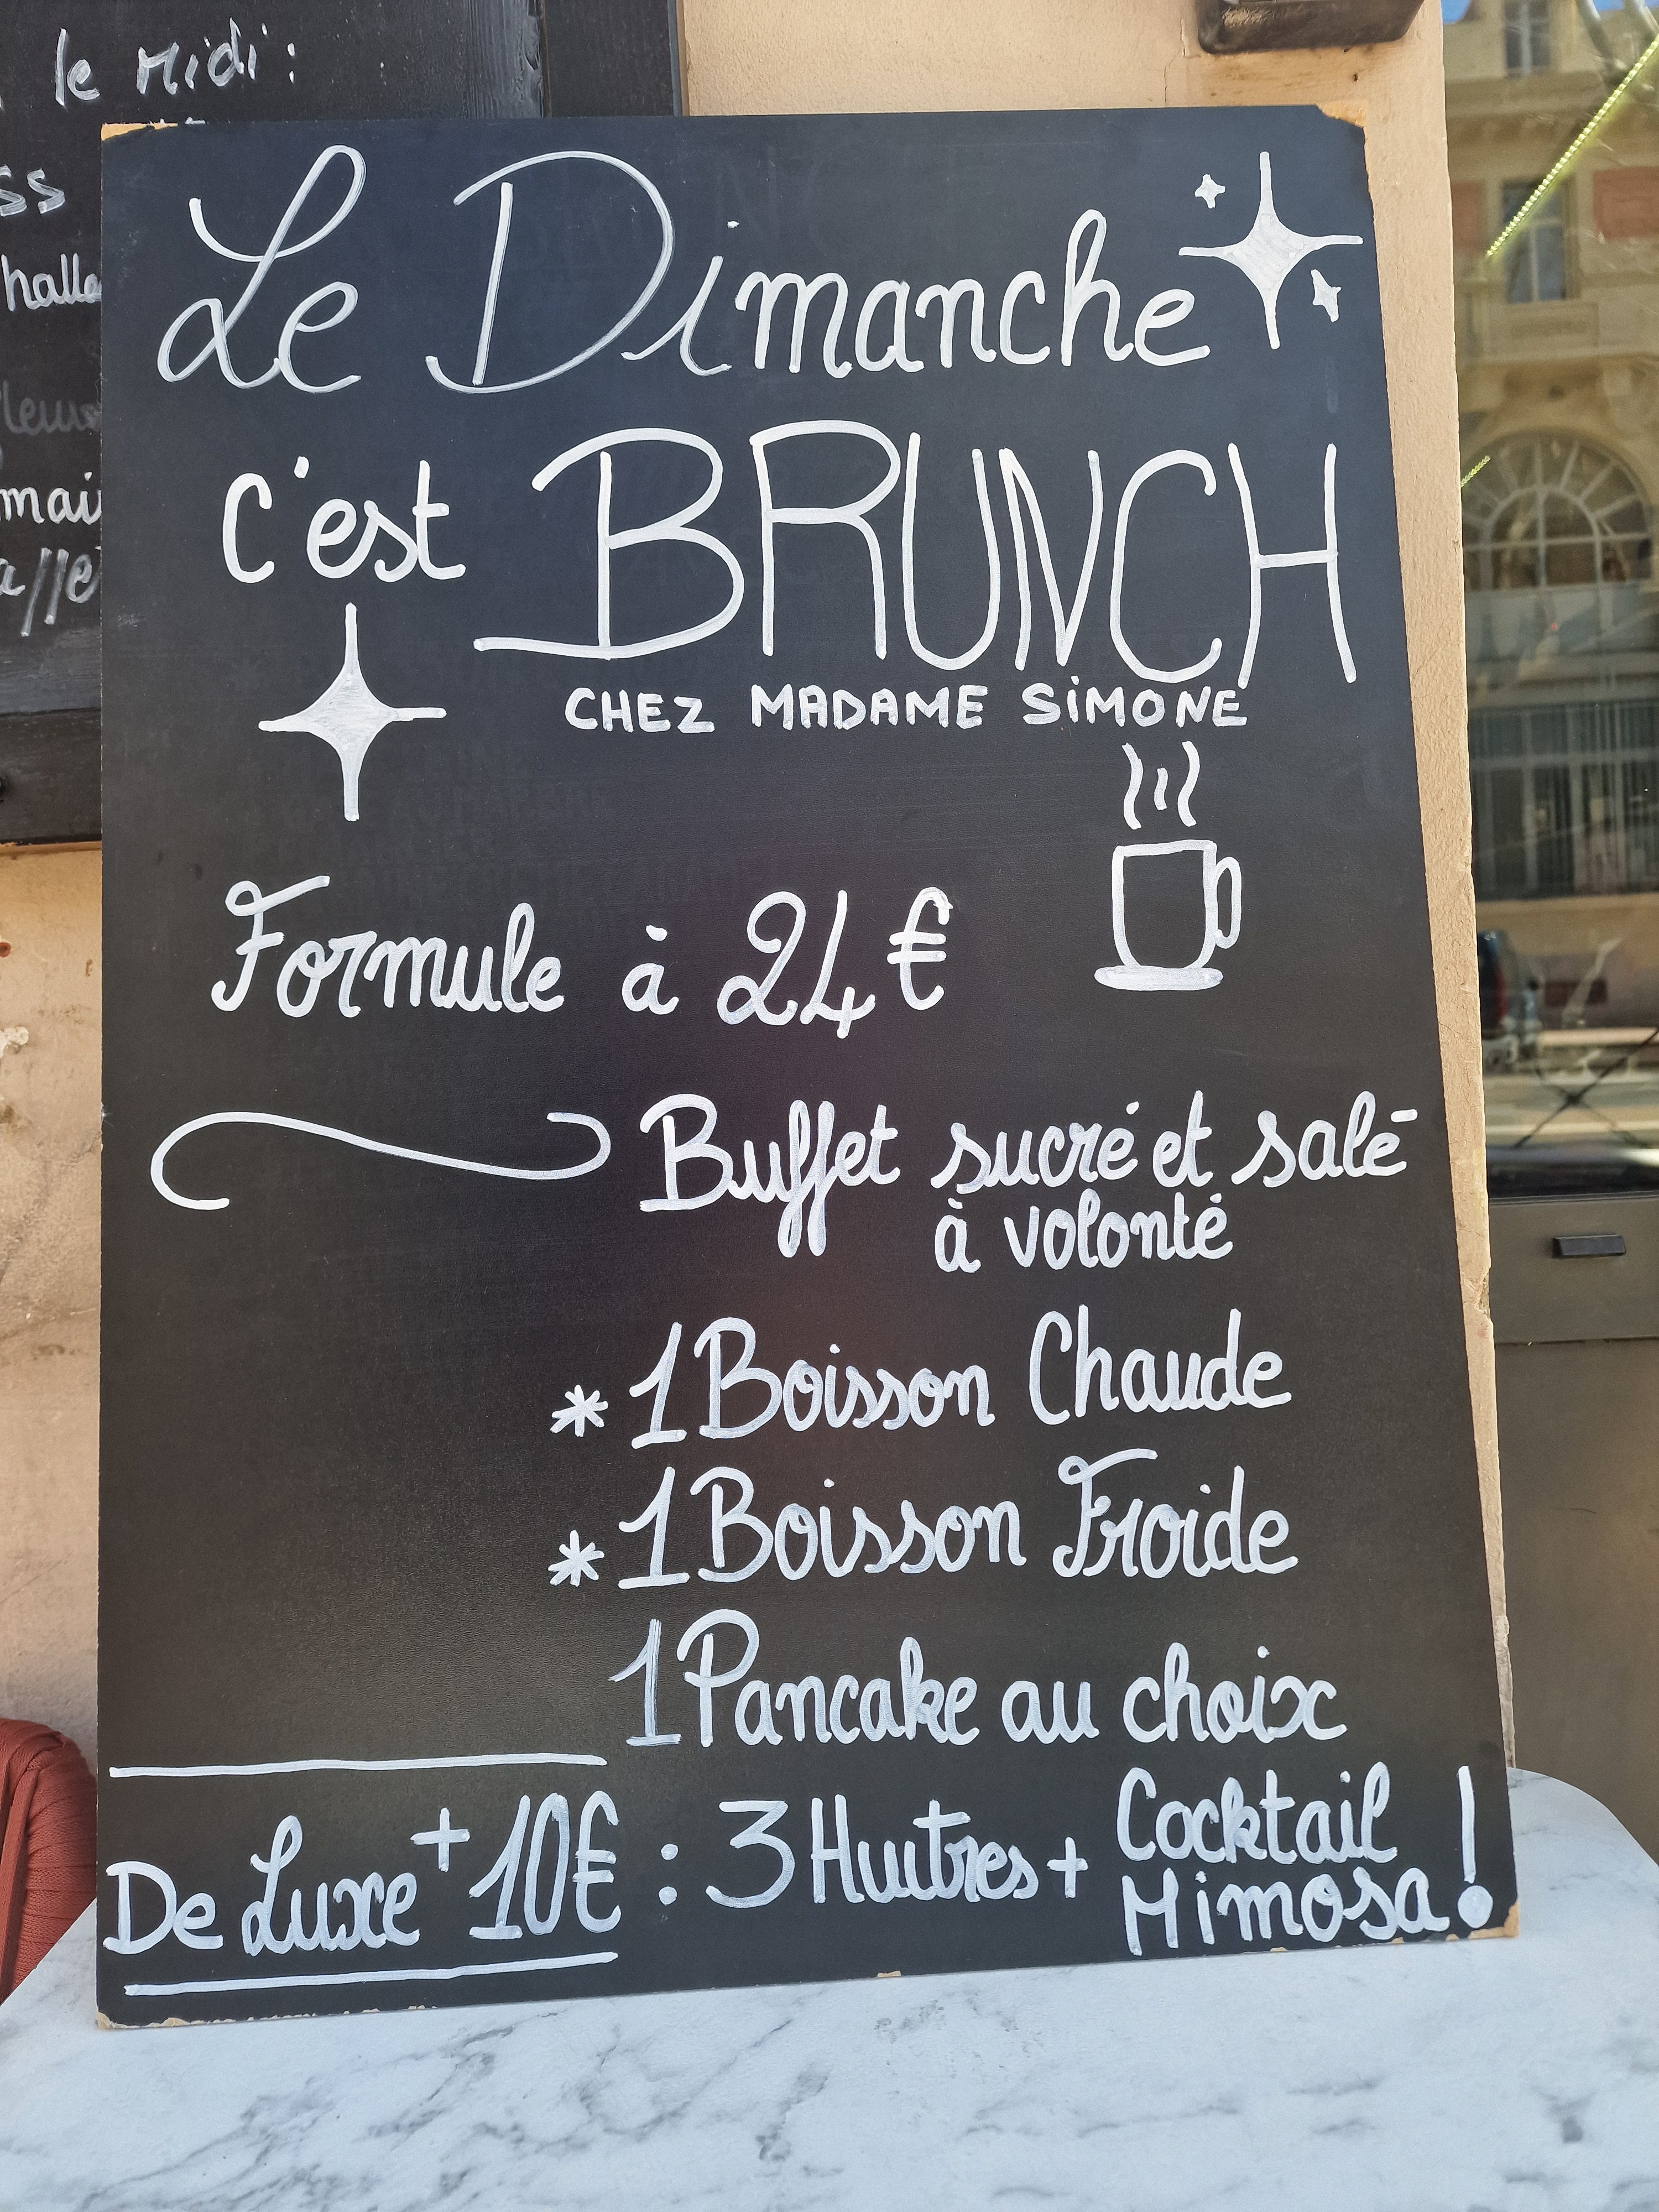 le Midi :
ss
halle
mai
Le Dimanche
c'est BRUNCH
CHEZ MADAME SIMONE
Formule à 24€
Buffet sucré et salé
à volonté
* 1 Boisson Chaude
* 1 Boisson Froide
1 Pancake au choix
De Luxe +10€ : 3 Huitres + Cocktail Mimosa !